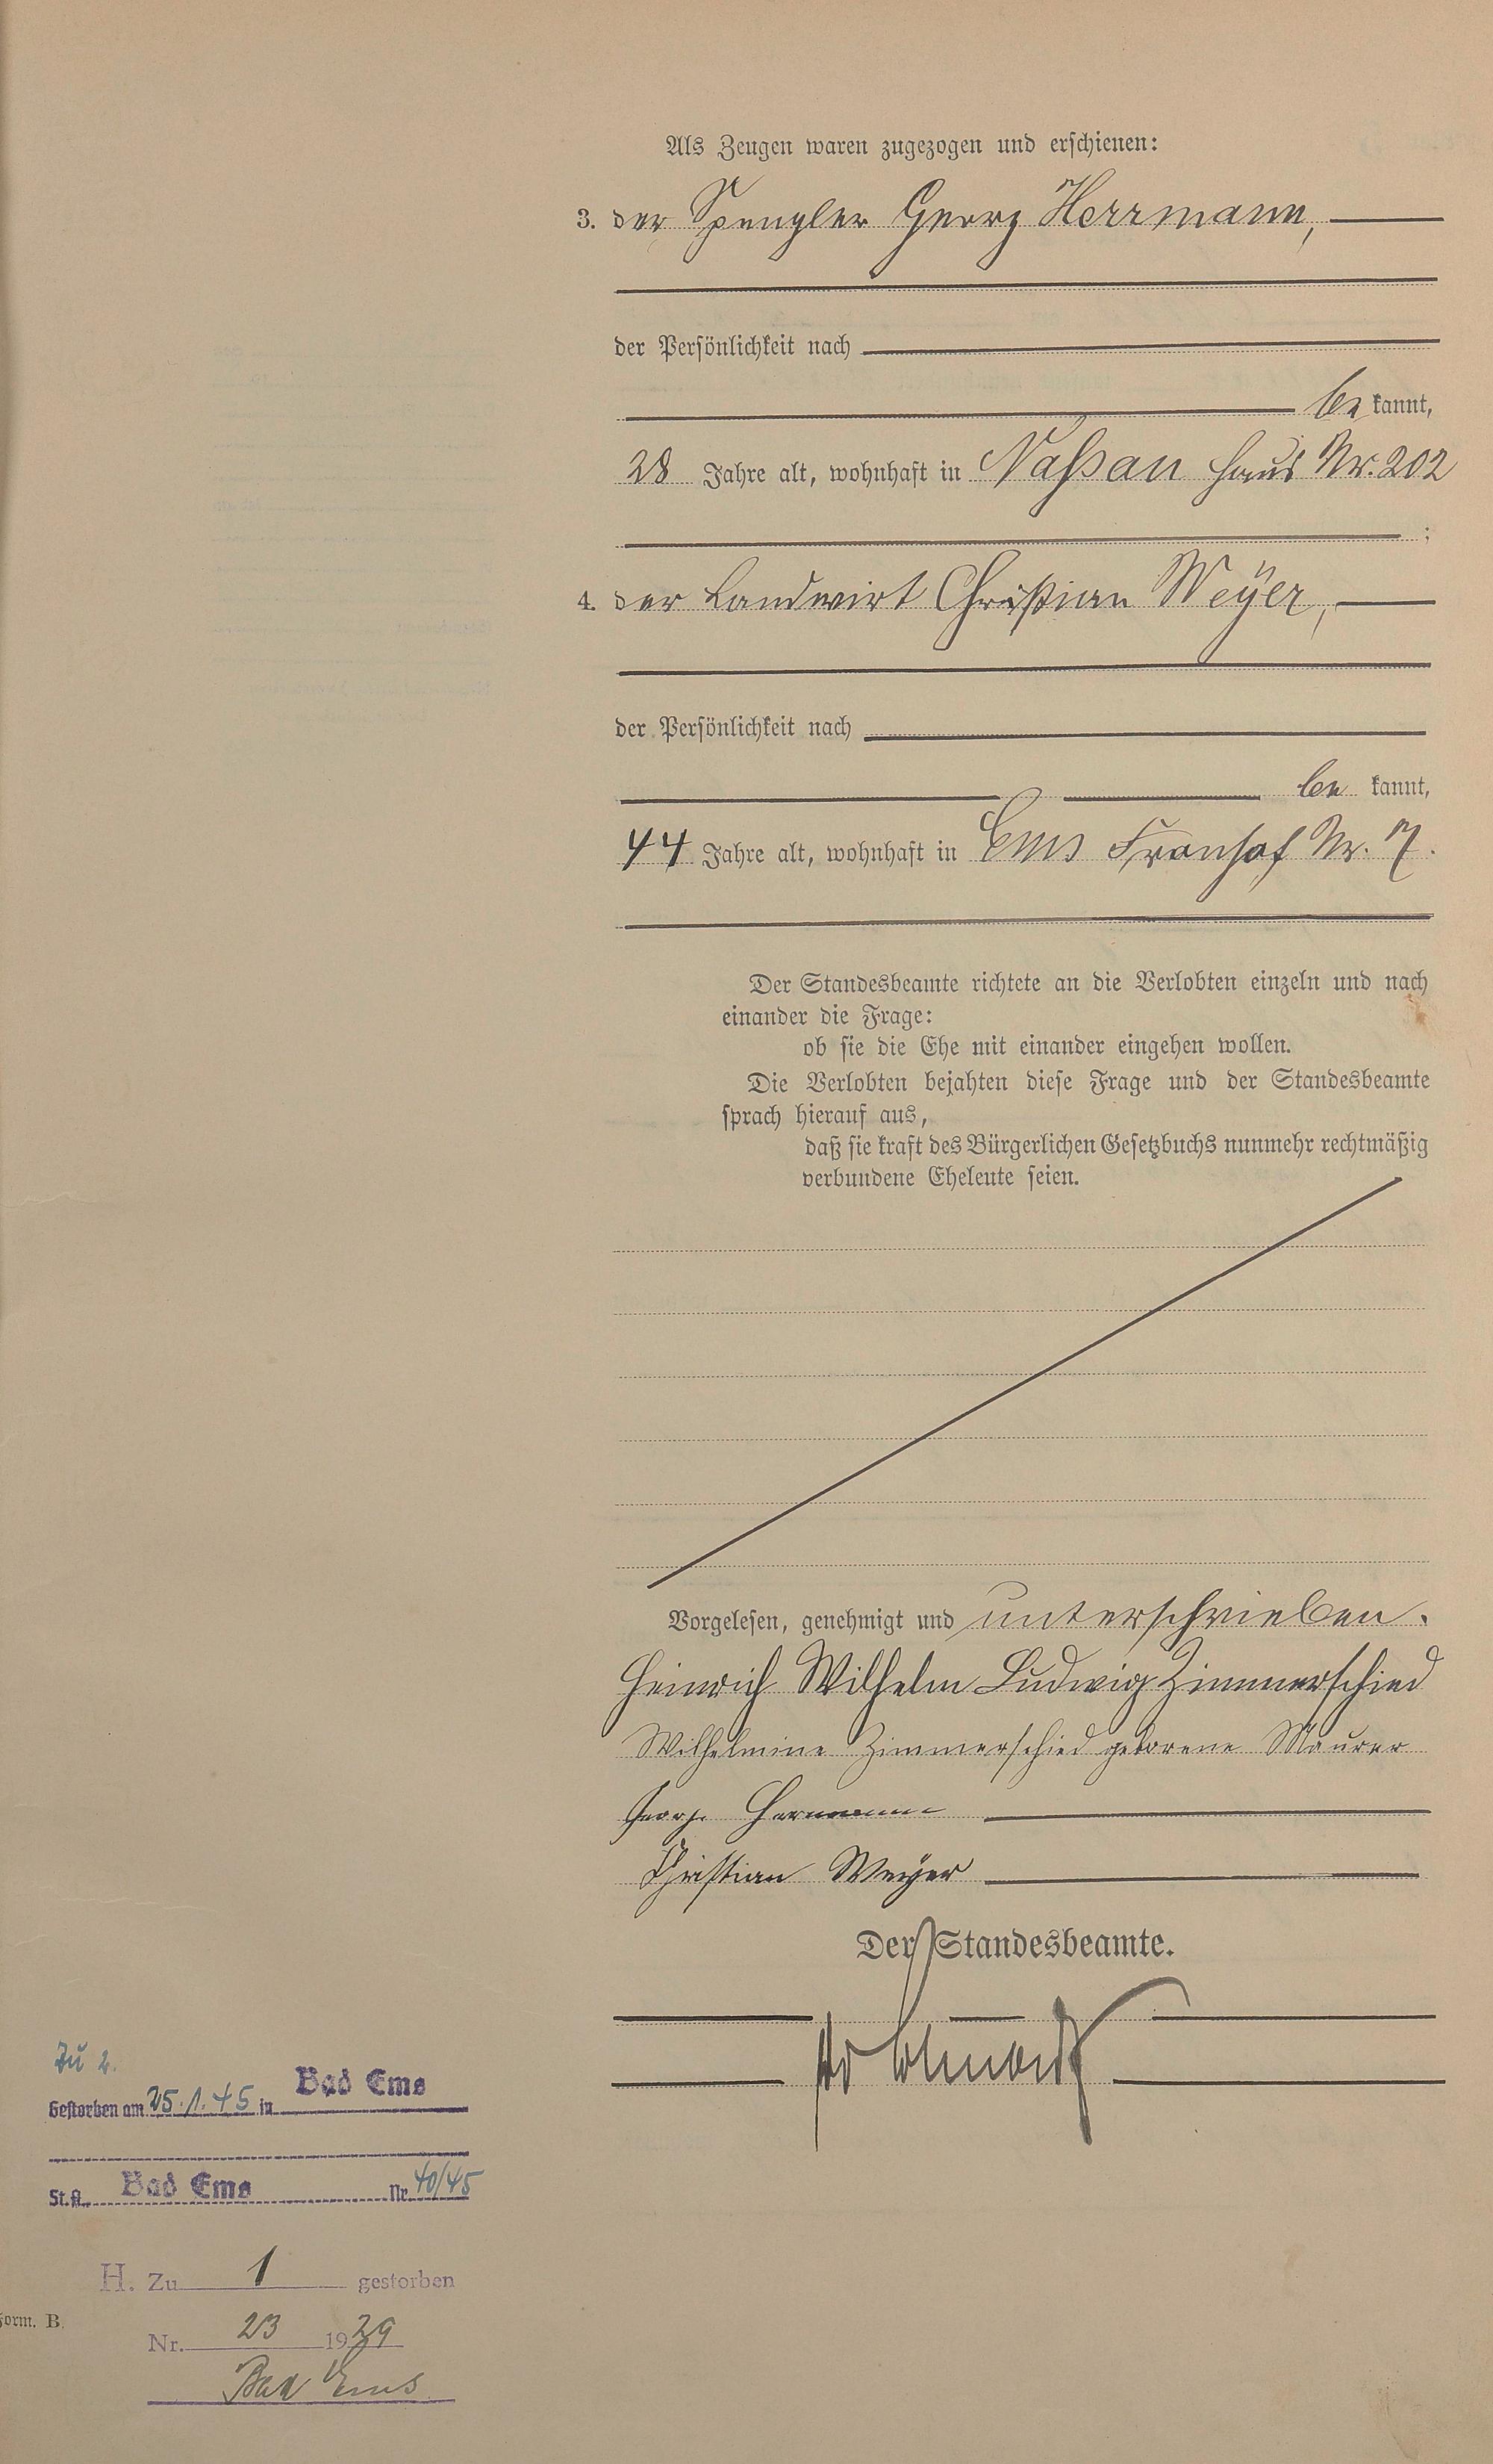 Als Zeugen waren zugezogen und erschienen:
3. der Spengler Georg Herrmann,
der Persönlichkeit nach
be kannt,
28 Jahre alt, wohnhaft in Nassau Haus Nr. 202
;
4. der Landwirt Christian Weÿer,
der Persönlichkeit nach
be kannt,
44 Jahre alt, wohnhaft in Ems Fronhof Nr. 7.
Der Standesbeamte richtete an die Verlobten einzeln und nach
einander die Frage:
ob sie die Ehe mit einander eingehen wollen.
Die Verlobten bejahten diese Frage und der Standesbeamte
sprach hierauf aus,
daß sie kraft des Bürgerlichen Gesetzbuchs nunmehr rechtmäßig
verbundene Eheleute seien.
Vorgelesen, genehmigt und unterschrieben.
Heinrich Wilhelm Ludwig Zimmerschied
Wilhelmine Zimmerschied geborene Maurer
Georg Herrmann
Christian Weyer
Der Standesbeamte.
Zu 2.
Gestorben am 25.1.45 in Bad Ems
St.A. Bad Ems Nr. 40/45
H. Zu 1 gestorben
Form. B.
Nr. 23 1929
Bad Ems